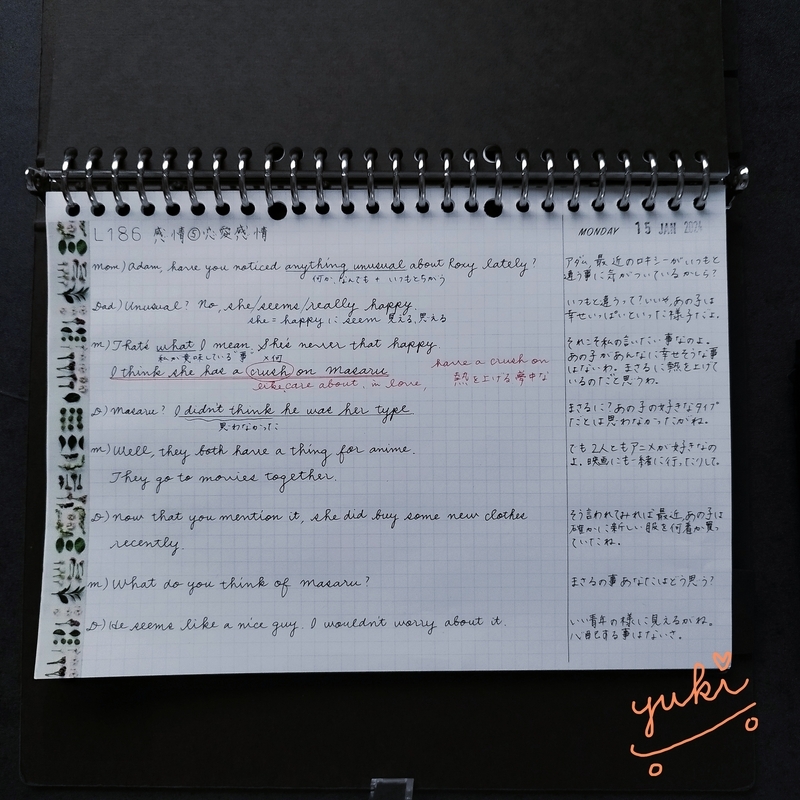 L186 感情⑤恋愛感情
MONDAY 15 JAN 2024
Mom) Adam, have you noticed anything unusual about Roxy lately?
何か、なんでも + いつもとちがう
Dad) Unusual? No, she/seems/really happy.
she = happy に seem 見える、思える
M) That's what I mean. She's never that happy.
私が意味している"事" ×何
I think she has a crush on Masaru
have a crush on
like care about, in love,
熱を上げる 夢中な
D) Masaru? I didn't think he was her type
思わなかった
M) Well, they both have a thing for anime.
They go to movies together.
D) Now that you mention it, she did buy some new clothes
recently.
M) What do you think of Masaru?
D) He seems like a nice guy. I wouldn't worry about it.
アダム、最近のロキシーがいつもと
違う事に気がついているかしら?
いつもと違うって?いいや、あの子は
幸せいっぱいといった様子だよ。
それこそ私の言いたい事なのよ。
あの子があんなに幸せそうな事
はないわ。まさるに熱を上げて
いるのだと思うわ。
まさるに?あの子の好きなタイプ
だとは思わなかったがね。
でも2人ともアニメが好きなの
よ。映画にも一緒に行ったりして。
そう言われてみれば最近、あの子は
確かに新しい服を何着か買っ
ていたね。
まさるの事あなたはどう思う?
いい青年の様に見えるがね。
心配する事はないさ。
yuki